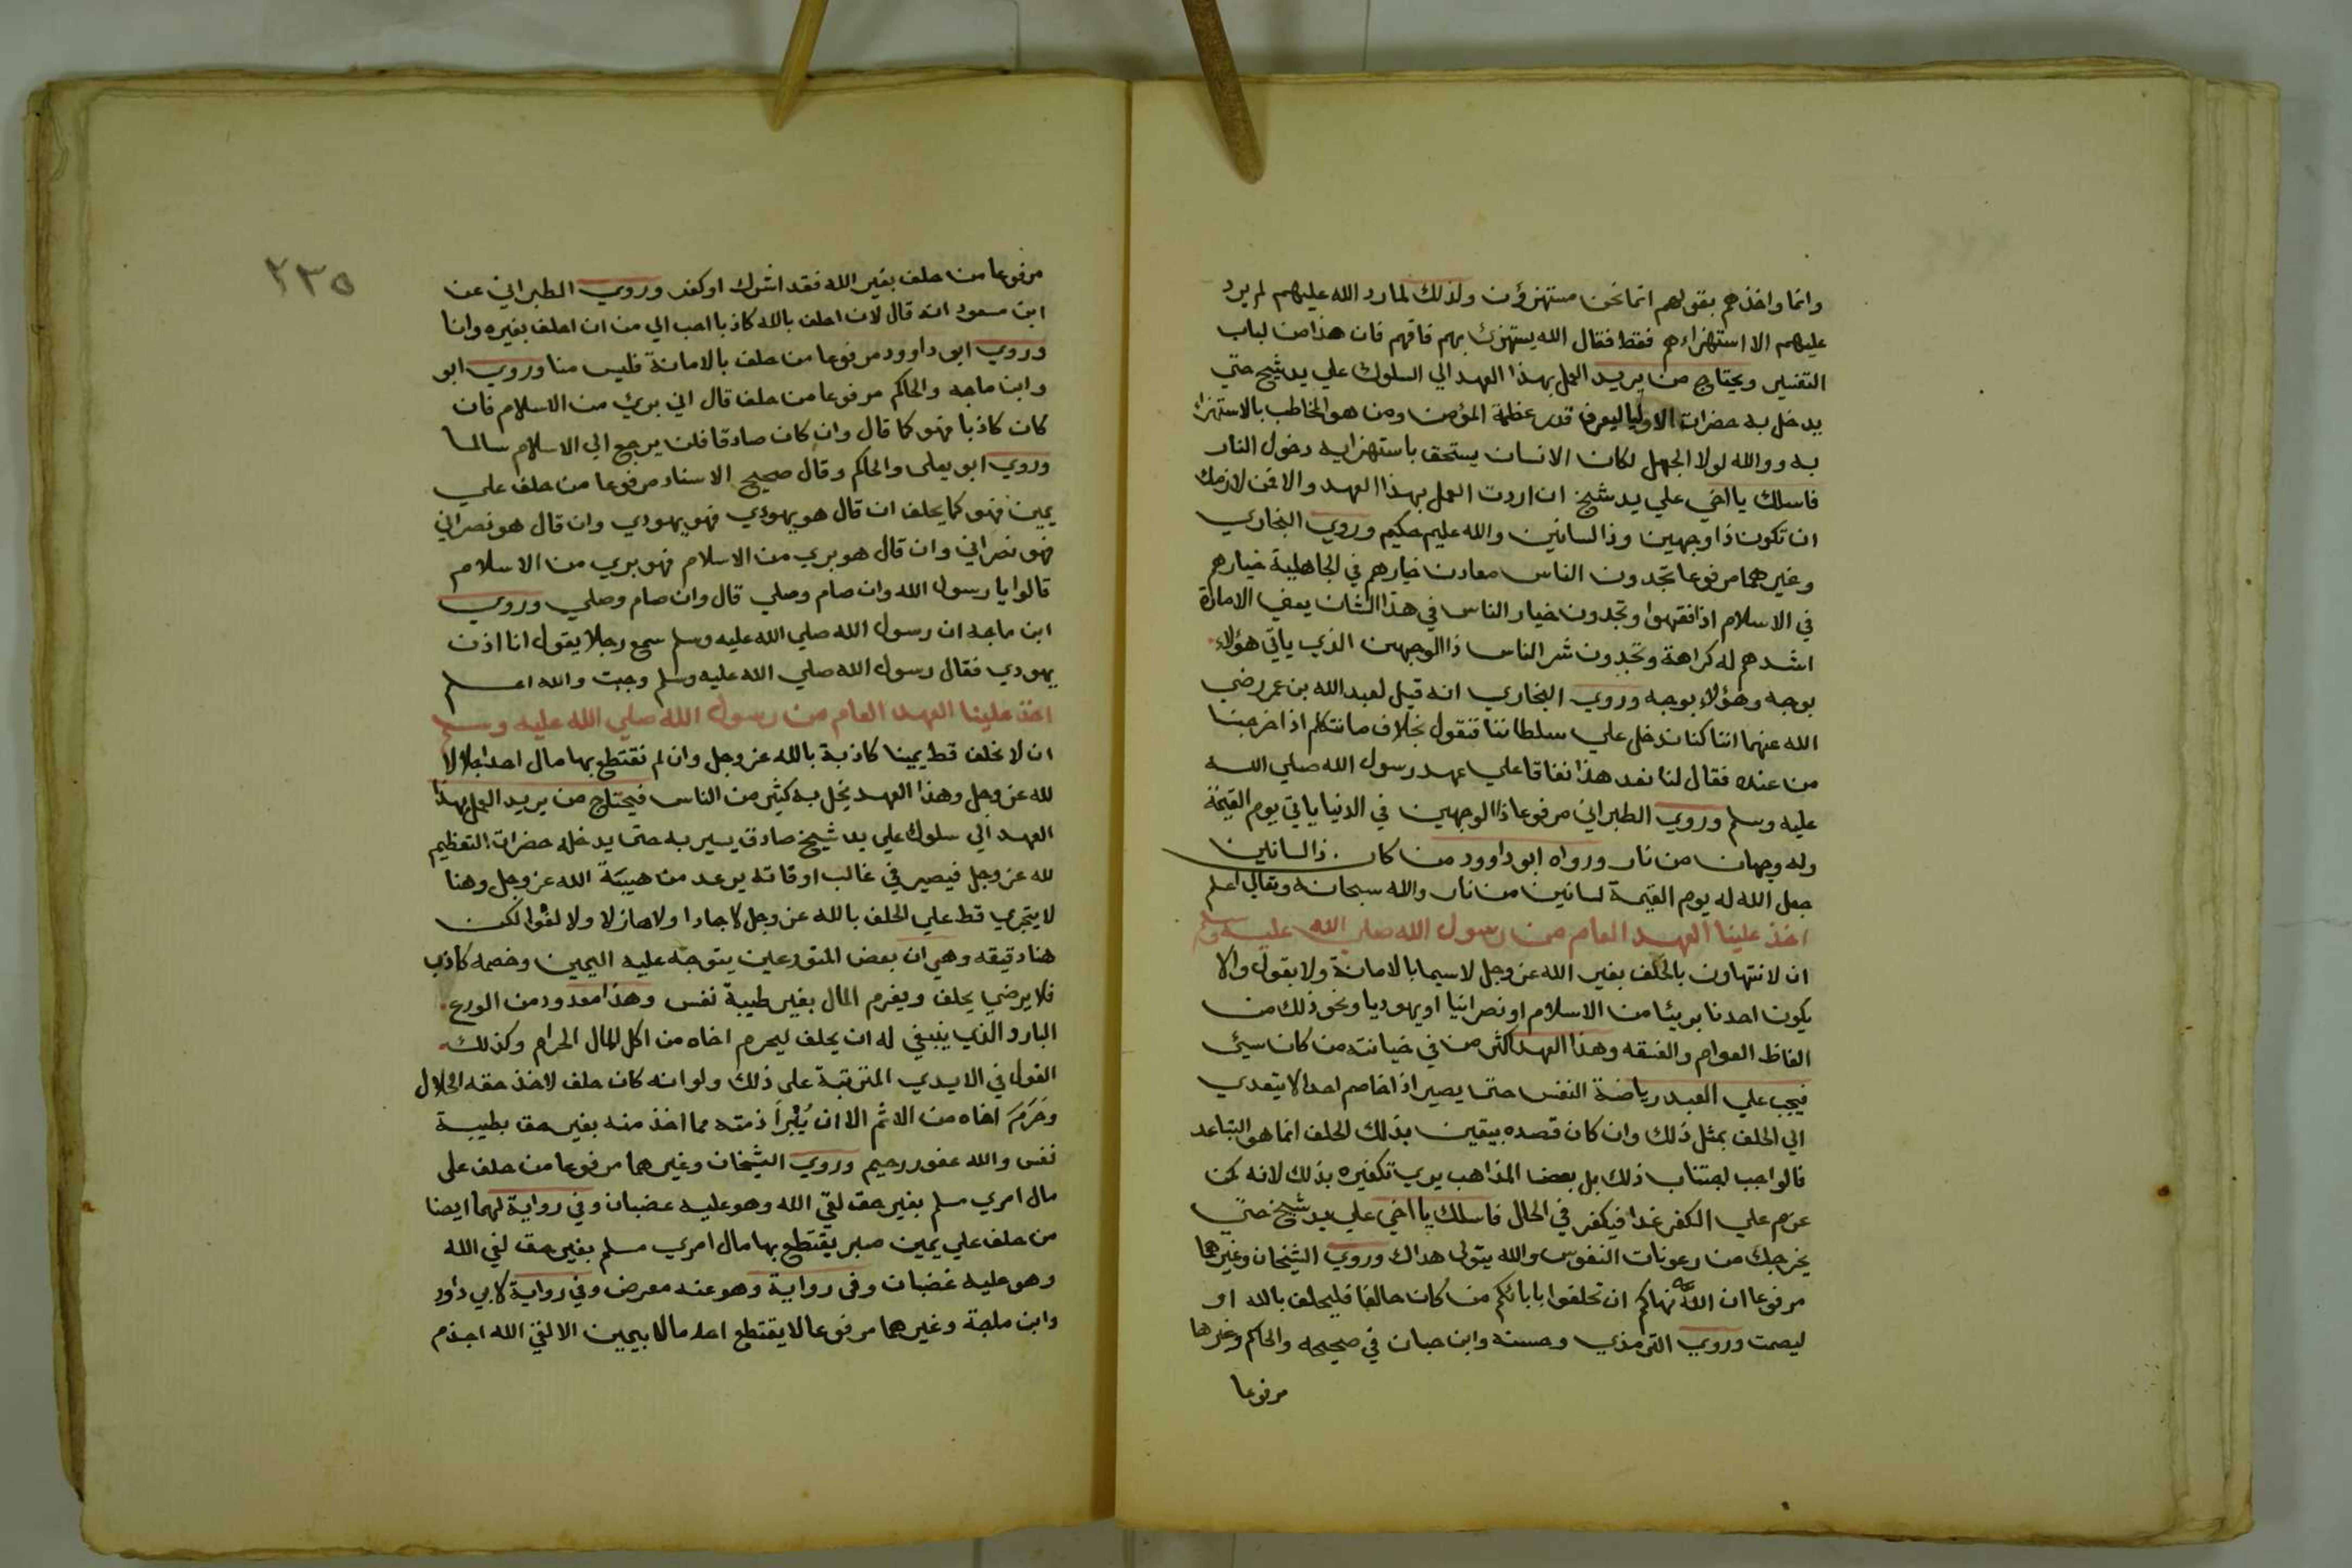 وانما واخذهم بقولهم انما نحن مستهزؤن ولذلك لما رد الله عليهم لم يرد
عليهم الا استهزاءهم فقط فقال الله يستهزئ بهم فافهم فان هذا من لباب
التفسير ويحتاج من يريد العمل بهذا العهد الي السلوك علي يد شيخ حتي
يدخل به حضرات الاوليا ليعرف قدر عظمة المؤمن ومن هو المخاطب بالاستهزاء
به ووالله لولا الجهل لكان الانسان يستحق باستهزايه دخول النار
فاسلك يا اخي علي يد شيخ ان اردت العمل بهذا العهد والا فمن لازمك
ان تكون ذا وجهين وذا لسانين والله عليم حكيم وروي البخاري
وغيرهما مرفوعا تجدون الناس معادن خيارهم في الجاهلية خيارهم
في الاسلام اذا فقهوا وتجدون خيار الناس في هذا الشان يعني الامارة
اشدهم له كراهة وتجدون شر الناس ذا الوجهين الذي ياتي هؤلاء
بوجه وهؤلاء بوجه وروي البخاري انه قيل لعبد الله بن عمر رضي
الله عنهما اننا كنا ندخل علي سلطاننا فنقول بخلاف ما نتكلم اذا خرجنا
من عنده فقال لنا نعد هذا نفاقا علي عهد رسول الله صلي الله
عليه وسلم وروي الطبراني مرفوعا ذا الوجهين في الدنيا ياتي يوم القيمة
وله وجهان من نار ورواه ابو داوود من كان ذا لسانين
جعل الله له يوم القيمة لسانين من نار والله سبحانه وتعالي اعلم
اخذ علينا العهد العام من رسول الله صلي الله عليه وسلم
ان لا نتهاون بالحلف بغير الله عز وجل لاسيما بالامانة ولا بقول والا
يكون احدنا بريئا من الاسلام او نصرانيا او يهوديا ونحو ذلك من
الفاظ العوام والفسقه وهذا العهد اكثر من في خيانته من كان سيئ
فيجب علي العبد رياضة النفس حتى يصير اذا خاصم احدا لا يتعدي
الي الحلف بمثل ذلك وان كان قصده بيقين بذلك الحلف انما هو التباعد
فالواجب اجتناب ذلك بل بعض المذاهب يري تكفيره بذلك لانه كمن
عزم علي الكفر غدا فيكفر في الحال فاسلك يا اخي علي يد شيخ حتي
يخرجك من رعونات النفوس والله يتولى هداك وروي الشيخان وغيرهما
مرفوعا ان الله نهاكم ان تحلفوا بابائكم من كان حالفا فليحلف بالله او
ليصمت وروي الترمذي وحسنه وابن حبان في صحيحه والحاكم وغيرها
مرفوعا
٢٣٥
مرفوعا من حلف بغير الله فقد اشرك او كفر وروي الطبراني عن
ابن مسعود انه قال لان احلف بالله كاذبا احب الي من ان احلف بغيره وانا
وروي ابو داوود مرفوعا من حلف بالامانة فليس منا وروي ابو
وابن ماجه والحاكم مرفوعا من حلف قال اني بريئ من الاسلام فان
كان كاذبا فهو كما قال وان كان صادقا فلن يرجع الي الاسلام سالما
وروي ابو يعلى والحاكم وقال صحيح الاسناد مرفوعا من حلف علي
يمين فهو كما يحلف ان قال هو يهودي فهو يهودي وان قال هو نصراني
فهو نصراني وان قال هو بري من الاسلام فهو بري من الاسلام
قالوا يا رسول الله وان صام وصلي قال وان صام وصلي وروي
ابن ماجه ان رسول الله صلي الله عليه وسلم سمع رجلا يقول انا اذن
يهودي فقال رسول الله صلي الله عليه وسلم وجبت والله اعلم
اخذ علينا العهد العام من رسول الله صلي الله عليه وسلم
ان لا نحلف قط يمينا كاذبة بالله عز وجل وان لم نقتطع بها مال احد اجلالا
لله عز وجل وهذا العهد يخل به كثير من الناس فيحتاج من يريد العمل بهذا
العهد الي سلوك علي يد شيخ صادق يسير به حتى يدخله حضرات التعظيم
لله عز وجل فيصير في غالب اوقاته يرعد من هيبة الله عز وجل وهنا
لا يتجري قط علي الحلف بالله عز وجل لا جادا ولا هازلا ولا لغوا لكن
هنا دقيقه وهي ان بعض المتورعين يتوجه عليه اليمين وخصمه كاذب
فلا يرضي يحلف ويغرم المال بغير طيبة نفس وهذا معدود من الورع
البارد والذي ينبغي له ان يحلف ليحرم اخاه من اكل المال الحرام وكذلك
القول في الايدي المترتبة على ذلك ولو انه كان حلف لاخذ حقه الحلال
وحرم اخاه من الاثم الا ان يبرا ذمته مما اخذ منه بغير حق بطيبة
نفس والله غفور رحيم وروي الشيخان وغيرهما مرفوعا من حلف على
مال امري مسلم بغير حق لقي الله وهو عليه غضبان وفي رواية لهما ايضا
من حلف علي يمين صبر يقتطع بها مال امري مسلم بغير حق لقي الله
وهو عليه غضبان وفى رواية وهو عنه معرض وفي رواية لابي داود
وابن ماجة وغيرهما مرفوعا لا يقتطع احد مالا بيمين الا لقي الله اجذم